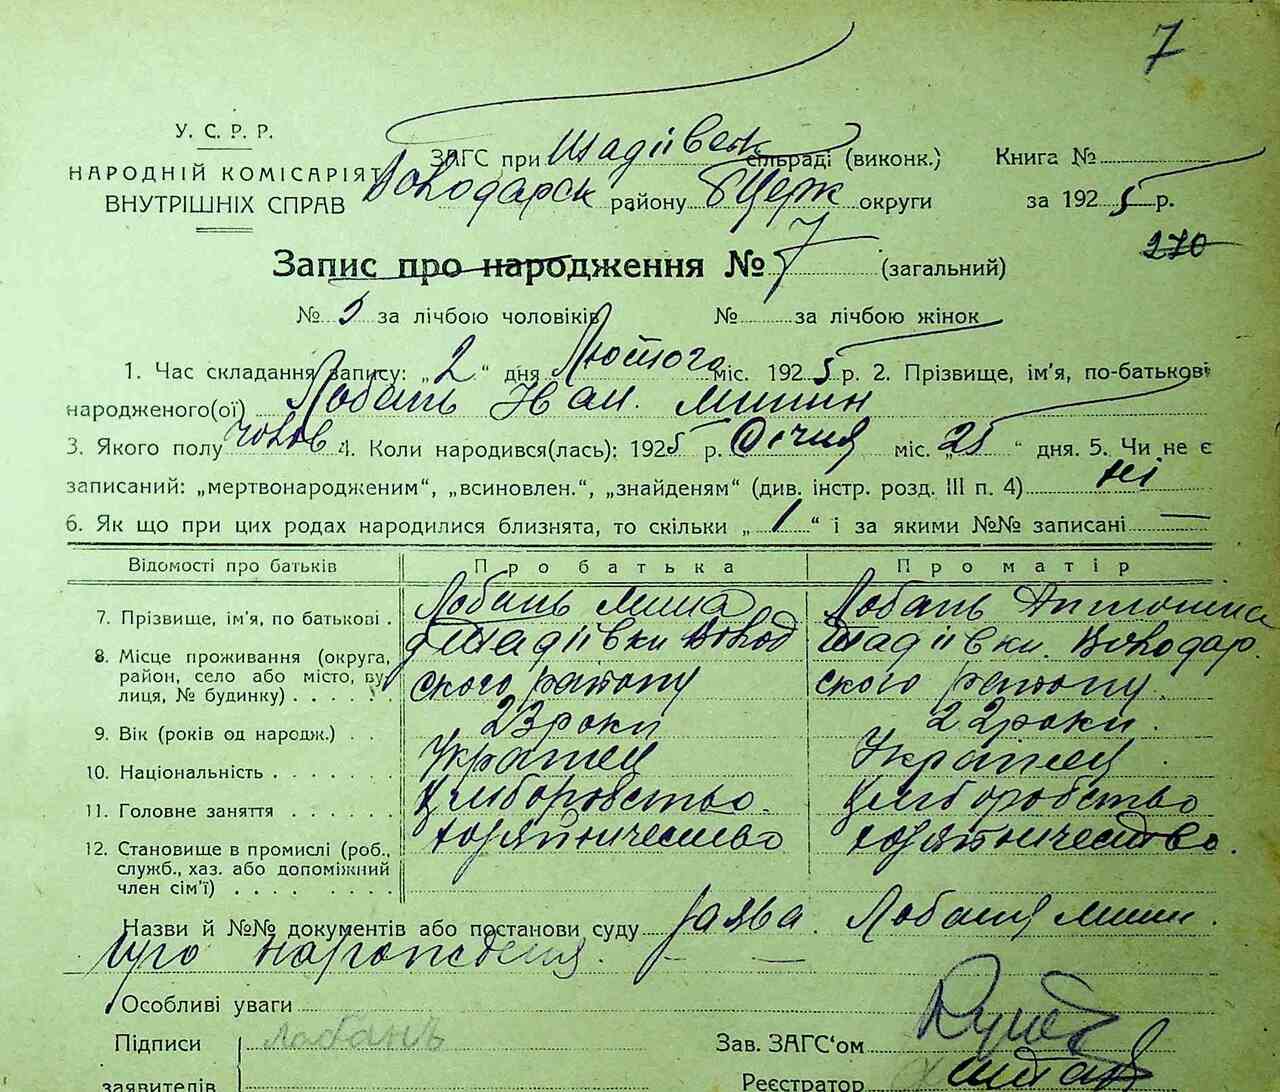 7
У. С. Р. Р.
НАРОДНІЙ КОМІСАРІЯТ
ВНУТРІШНІХ СПРАВ
ЗАГС при Шадіївськ сільраді (виконк.)
Володарск району БЦерк округи
Книга №
за 1925 р.
Запис про народження № 7 (загальний)
270
№ 5 за лічбою чоловіків № за лічбою жінок
1. Час складання запису: „2“ дня Лютого міс. 1925 р. 2. Прізвище, ім'я, по-батькові
народженого(ої) Лобань Іван. Мишин
3. Якого полу чолов 4. Коли народився(лась): 1925 р. Січня міс. „25“ дня. 5. Чи не є
записаний: „мертвонародженим“, „всиновлен.“, „знайденям“ (див. інстр. розд. III п. 4) ні
6. Як що при цих родах народилися близнята, то скільки „1“ і за якими №№ записані —
Відомості про батьків Про батька Про матір
7. Прізвище, ім'я, по батькові . Лобань Миша Лобань
8. Місце проживання (округа, Шадіївки Волод Шадіївки. Володар.
район, село або місто, ву- ского району ского району.
лиця, № будинку) . . . .
9. Вік (років од народж.) . . 23 роки 22 роки.
10. Національність . . . . . . . Українец Українец
11. Головне заняття . . . . . .
12. Становище в промислі (роб.,
служб., хаз. або допоміжний
член сім'ї) . . . . .
Назви й №№ документів або постанови суду заява. Лобаня Миши.
про народження. — —
Особливі уваги
Підписи Лобань Зав. ЗАГС'ом
заявителів Реєстратор